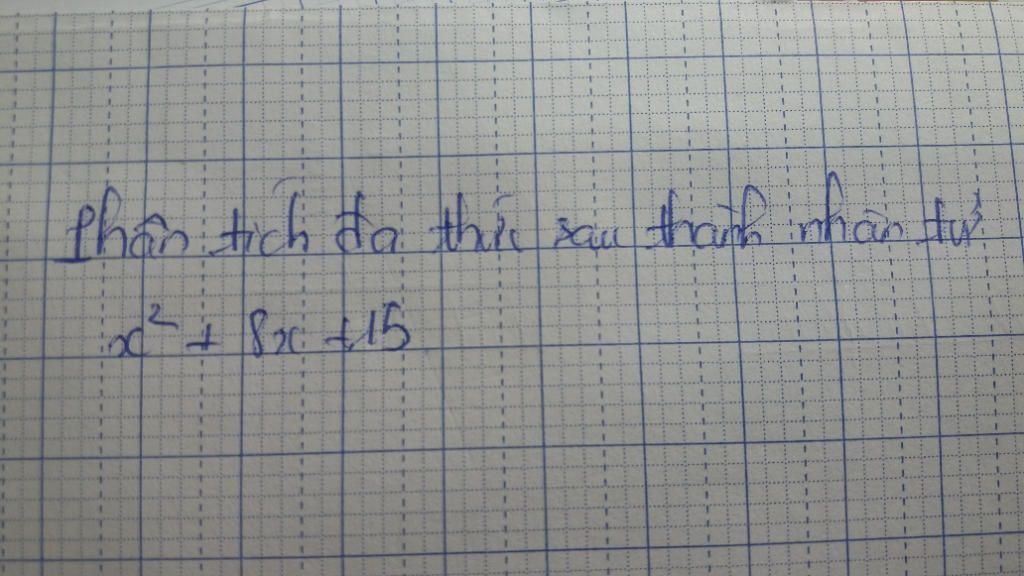 Phân tích đa thức sau thành nhân tử
x² + 8x + 15